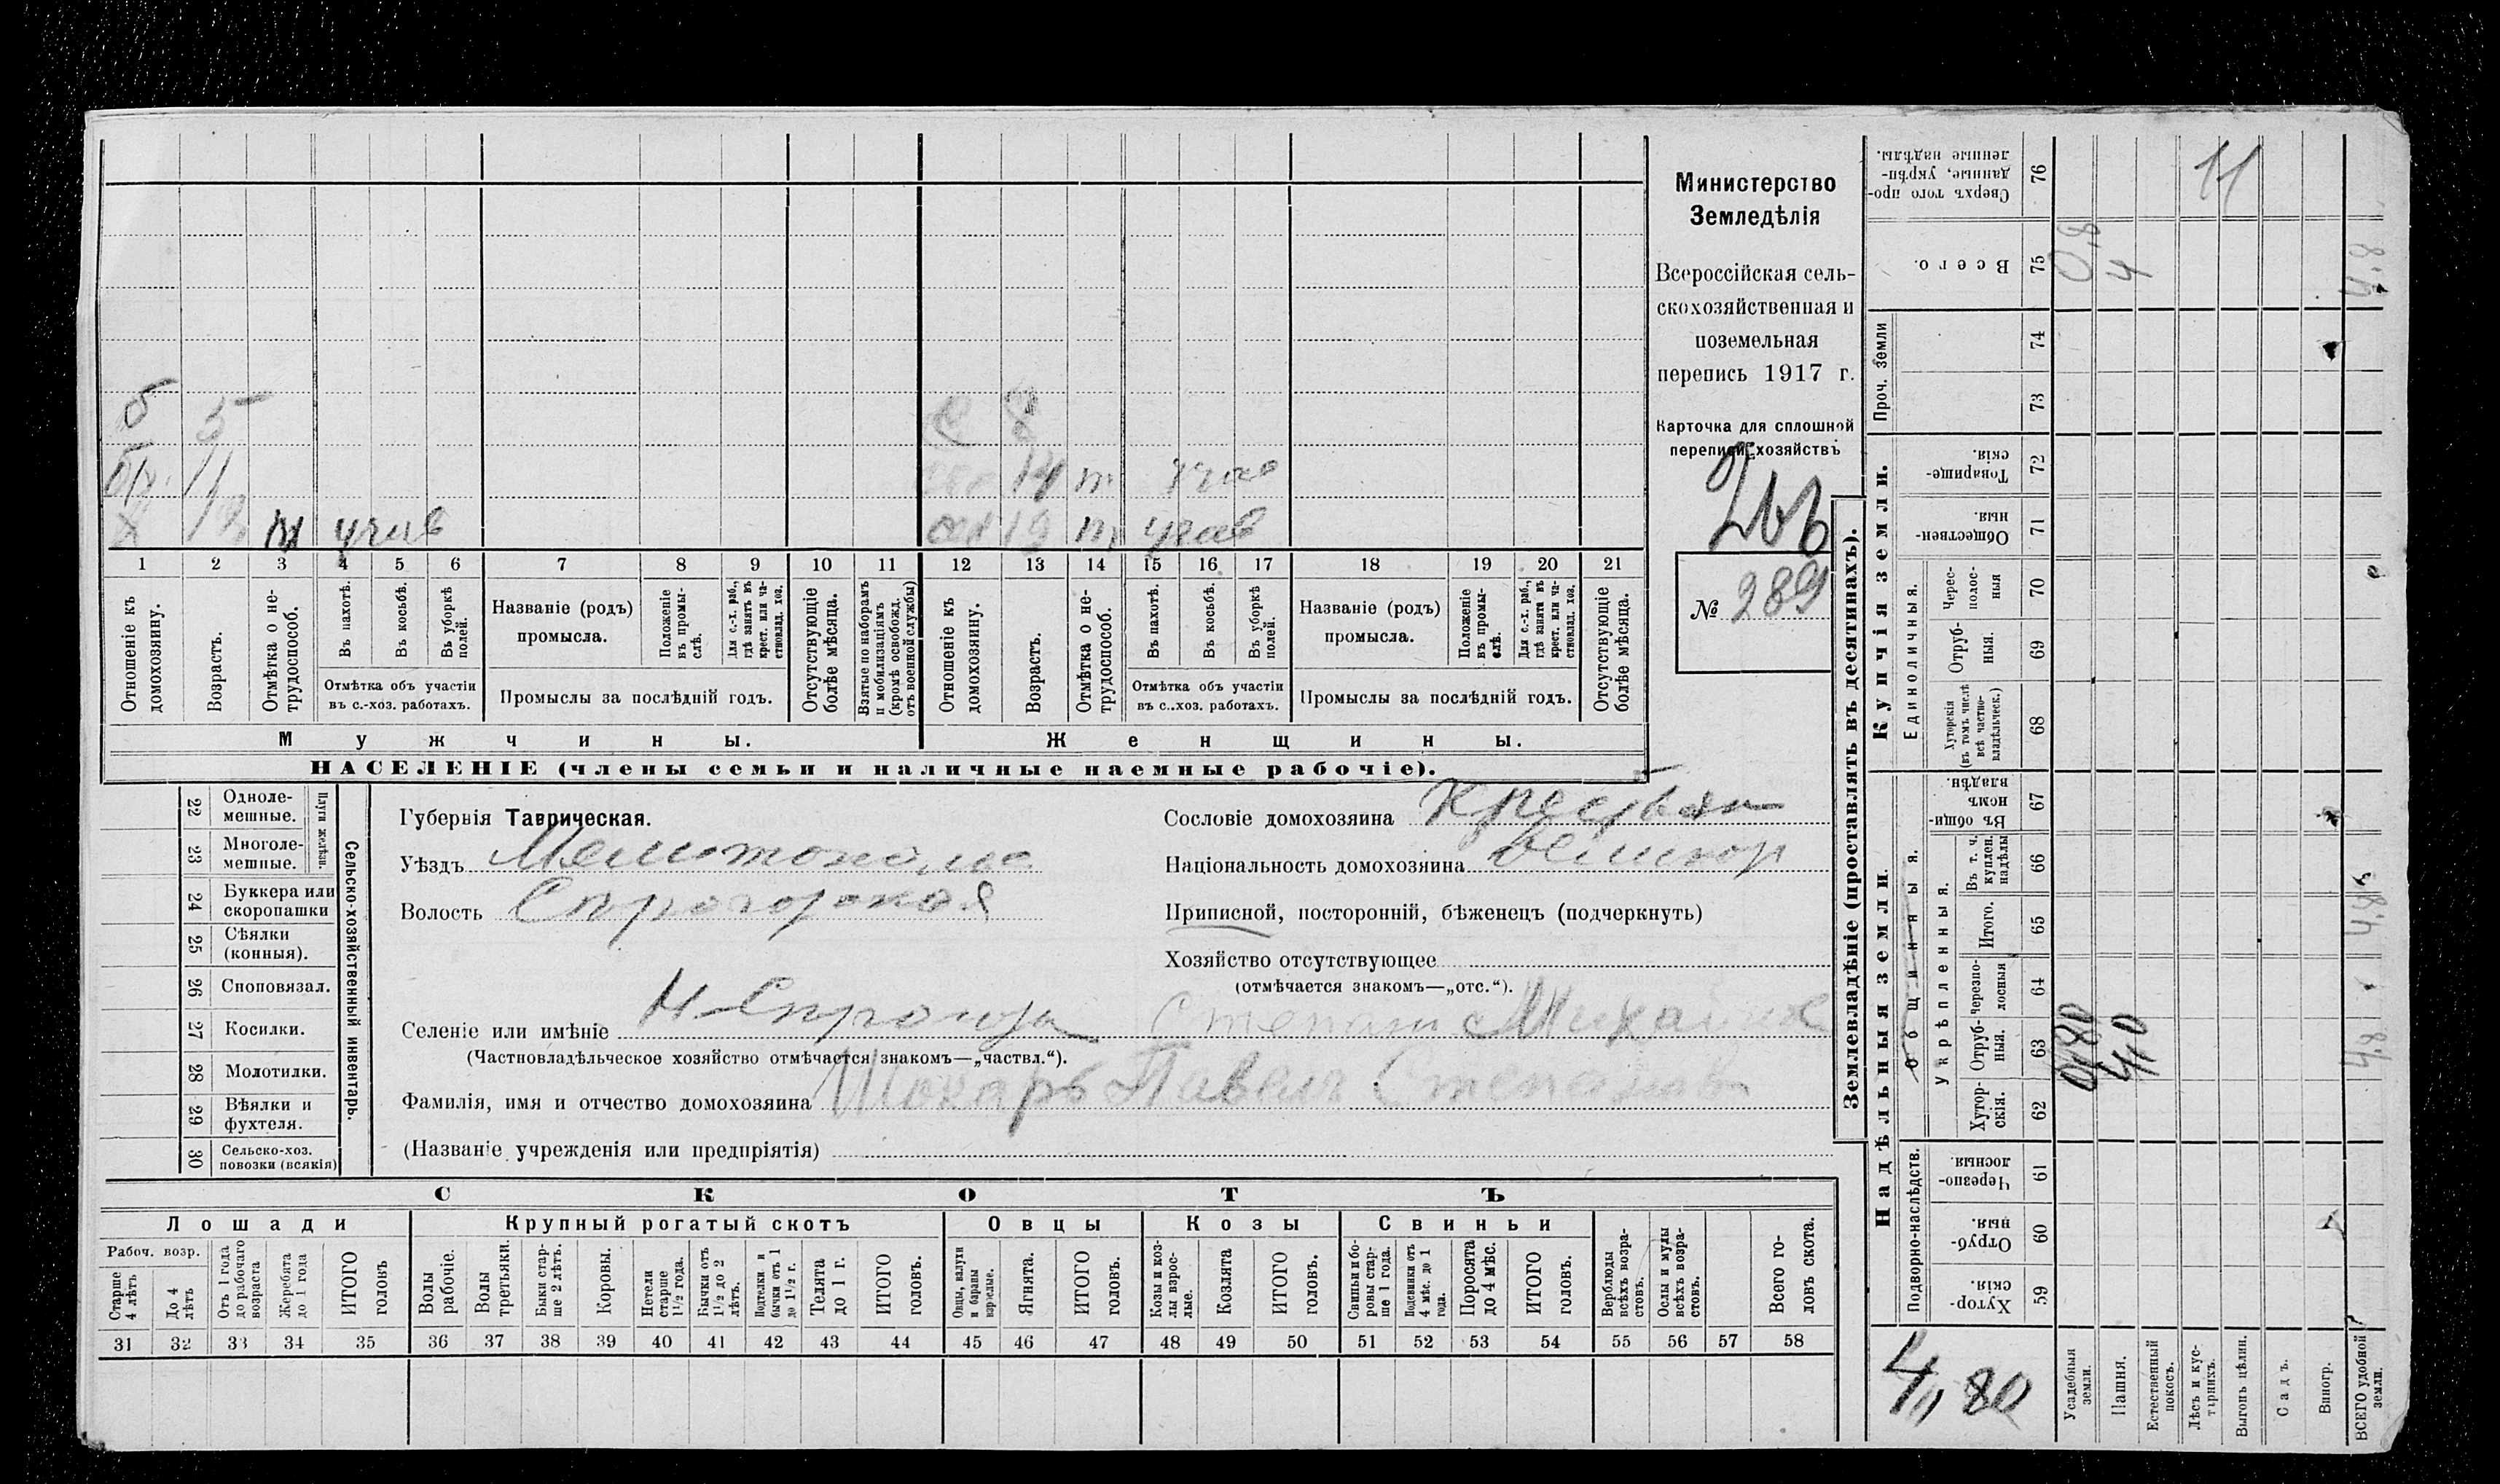 б 5 8
бр. 11 14 т
Х 19 т учав 19 т учав
1 2 3 4 5 6 7 8 9 10 11 12 13 14 15 16 17 18 19 20 21
Отношеніе къ домохозяину.
Возрастъ.
Отмѣтка о нетрудоспособ.
Въ пахотѣ.
Въ косьбѣ.
Въ уборкѣ полей.
Отмѣтка объ участіи
въ с.-хоз. работахъ.
Названіе (родъ)
промысла.
Положеніе въ промыслѣ.
Для с.-х. раб., гдѣ занятъ въ крест. или частновлад. хоз.
Промыслы за послѣдній годъ.
Отсутствующіе болѣе мѣсяца.
Взятые по наборамъ и мобилизаціямъ (кромѣ освобожд. отъ военной службы)
Отношеніе къ домохозяину.
Возрастъ.
Отмѣтка о нетрудоспособ.
Въ пахотѣ.
Въ косьбѣ.
Въ уборкѣ полей.
Отмѣтка объ участіи
въ с..хоз. работахъ.
Названіе (родъ)
промысла.
Положеніе въ промыслѣ.
Для с.-х. раб., гдѣ занята въ крест. или частновлад. хоз.
Промыслы за послѣдній годъ.
Отсутствующіе болѣе мѣсяца.
Мужчины. Женщины.
НАСЕЛЕНІЕ (члены семьи и наличные наемные рабочіе).
Министерство
Земледѣлія
Всероссійская сель-
скохозяйственная и
поземельная
перепись 1917 г.
Карточка для сплошной
переписи хозяйствъ
№ 289
22 Одноле-
мешные.
23 Многоле-
мешные.
Плуги желѣзн.
24 Буккера или
скоропашки
25 Сѣялки
(конныя).
26 Сноповязал.
27 Косилки.
28 Молотилки.
29 Вѣялки и
фухтеля.
30 Сельско-хоз.
повозки (всякія)
Сельско-хозяйственный инвентарь.
Губернія Таврическая.
Уѣздъ
Волость
Селеніе или имѣніе
(Частновладѣльческое хозяйство отмѣчается знакомъ—„частвл.“).
Степан Михайлов
Фамилія, имя и отчество домохозяина Шокарь Павелъ Степановъ
(Названіе учрежденія или предпріятія)
Сословіе домохозяина Крестьян
Національность домохозяина Великор
Приписной, посторонній, бѣженецъ (подчеркнуть)
Хозяйство отсутствующее
(отмѣчается знакомъ—„отс.“).
СКОТЪ
Лошади Крупный рогатый скотъ Овцы Козы Свиньи
Рабоч. возр.
Старше 4 лѣтъ
До 4 лѣтъ
Отъ 1 года до рабочаго возраста
Жеребята до 1 года
ИТОГО головъ
Волы рабочіе.
Волы третьяки.
Быки старше 2 лѣтъ.
Коровы.
Нетели старше 1½ года.
Бычки отъ 1½ до 2 лѣтъ.
Подтелки и бычки отъ 1 до 1½ г.
Телята до 1 г.
ИТОГО головъ.
Овцы, валухи и бараны взрослые.
Ягнята.
ИТОГО головъ.
Козы и козлы взрослые.
Козлята
ИТОГО головъ.
Свиньи и боровы старше 1 года.
Подсвинки отъ 4 мѣс. до 1 года.
Поросята до 4 мѣс.
ИТОГО головъ.
Верблюды всѣхъ возрастовъ.
Ослы и мулы всѣхъ возрастовъ.
Всего головъ скота.
31 32 33 34 35 36 37 38 39 40 41 42 43 44 45 46 47 48 49 50 51 52 53 54 55 56 57 58
Землевладѣніе (проставлять въ десятинахъ).
Надѣльныя земли. Купчія земли. Проч. земли
Подворно-наслѣдств.
Общинныя.
Укрѣпленныя.
Единоличныя.
Сверхъ того проданные, укрѣпленные надѣлы. 76 11
Всего. 75 0,8 4 4,8
74
73
Товарищескія. 72
Общественныя. 71
Чересполосныя 70
Отрубныя. 69
Хуторскія (въ томъ числѣ всѣ частновладѣльческ.) 68
Въ общинномъ владѣн. 67
Въ т. ч. куплен. надѣлы 66
Итого. 65 4,8
Черезполосныя 64
Отрубныя. 63 0,80 4,0 4,8
Хуторскія. 62
Черезполосныя. 61
Отрубныя. 60
Хуторскія. 59
4,, 80
Усадебныя земли.
Пашня.
Естественный покосъ.
Лѣсъ и кустарникъ.
Выгонъ цѣлин.
Садъ.
Виногр.
ВСЕГО удобной земли.